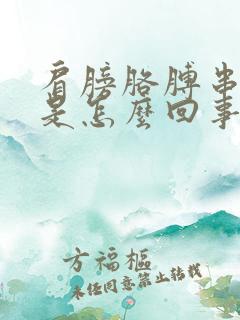 肩膀胳膊串
是怎麼回事
方福樞
未经同意禁止转载